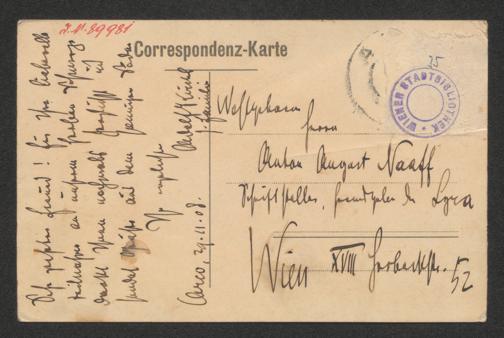 J.N. 89981
Correspondenz-Karte
75
WIENER STADTBIBLIOTHEK
Sehr geehrter Freund! Für Ihre liebevolle
Teilnahme an unserem großen Schmerze
dankt Ihnen nochmals herzlichst und
sendet Grüße aus dem sonnigen Süden
Ihr
Arco, 29.11.08.
Wohlgeboren
Herrn
Anton August Naaff
Schriftsteller, Herausgeber der Lyra
Wien XVIII
52